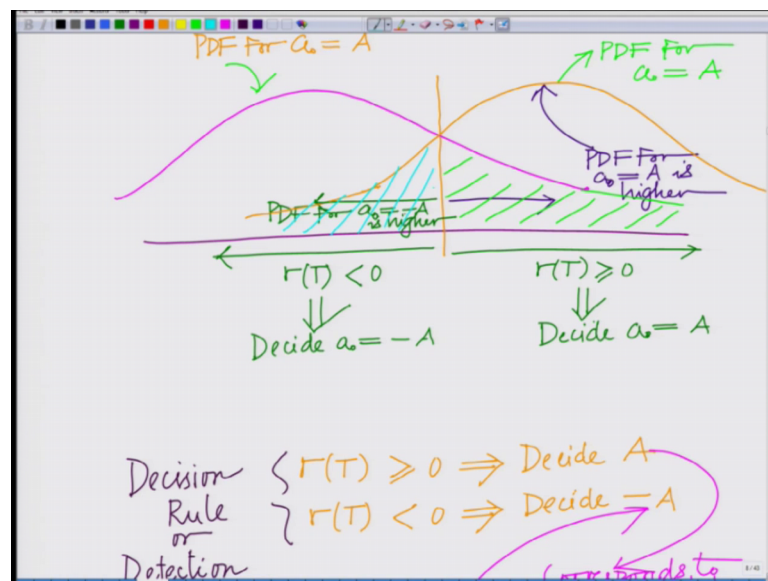 PDF For a₀ = A
PDF For
a₀ = A
PDF For
a₀ = A is
higher
PDF For a₀ = -A
is higher
r(T) < 0
r(T) ≥ 0
⇓
⇓
Decide a₀ = - A
Decide a₀ = A
Decision
Rule
or
Detection
{ r(T) ≥ 0 ⇒ Decide A
r(T) < 0 ⇒ Decide - A
Corresponds to
8 / 40